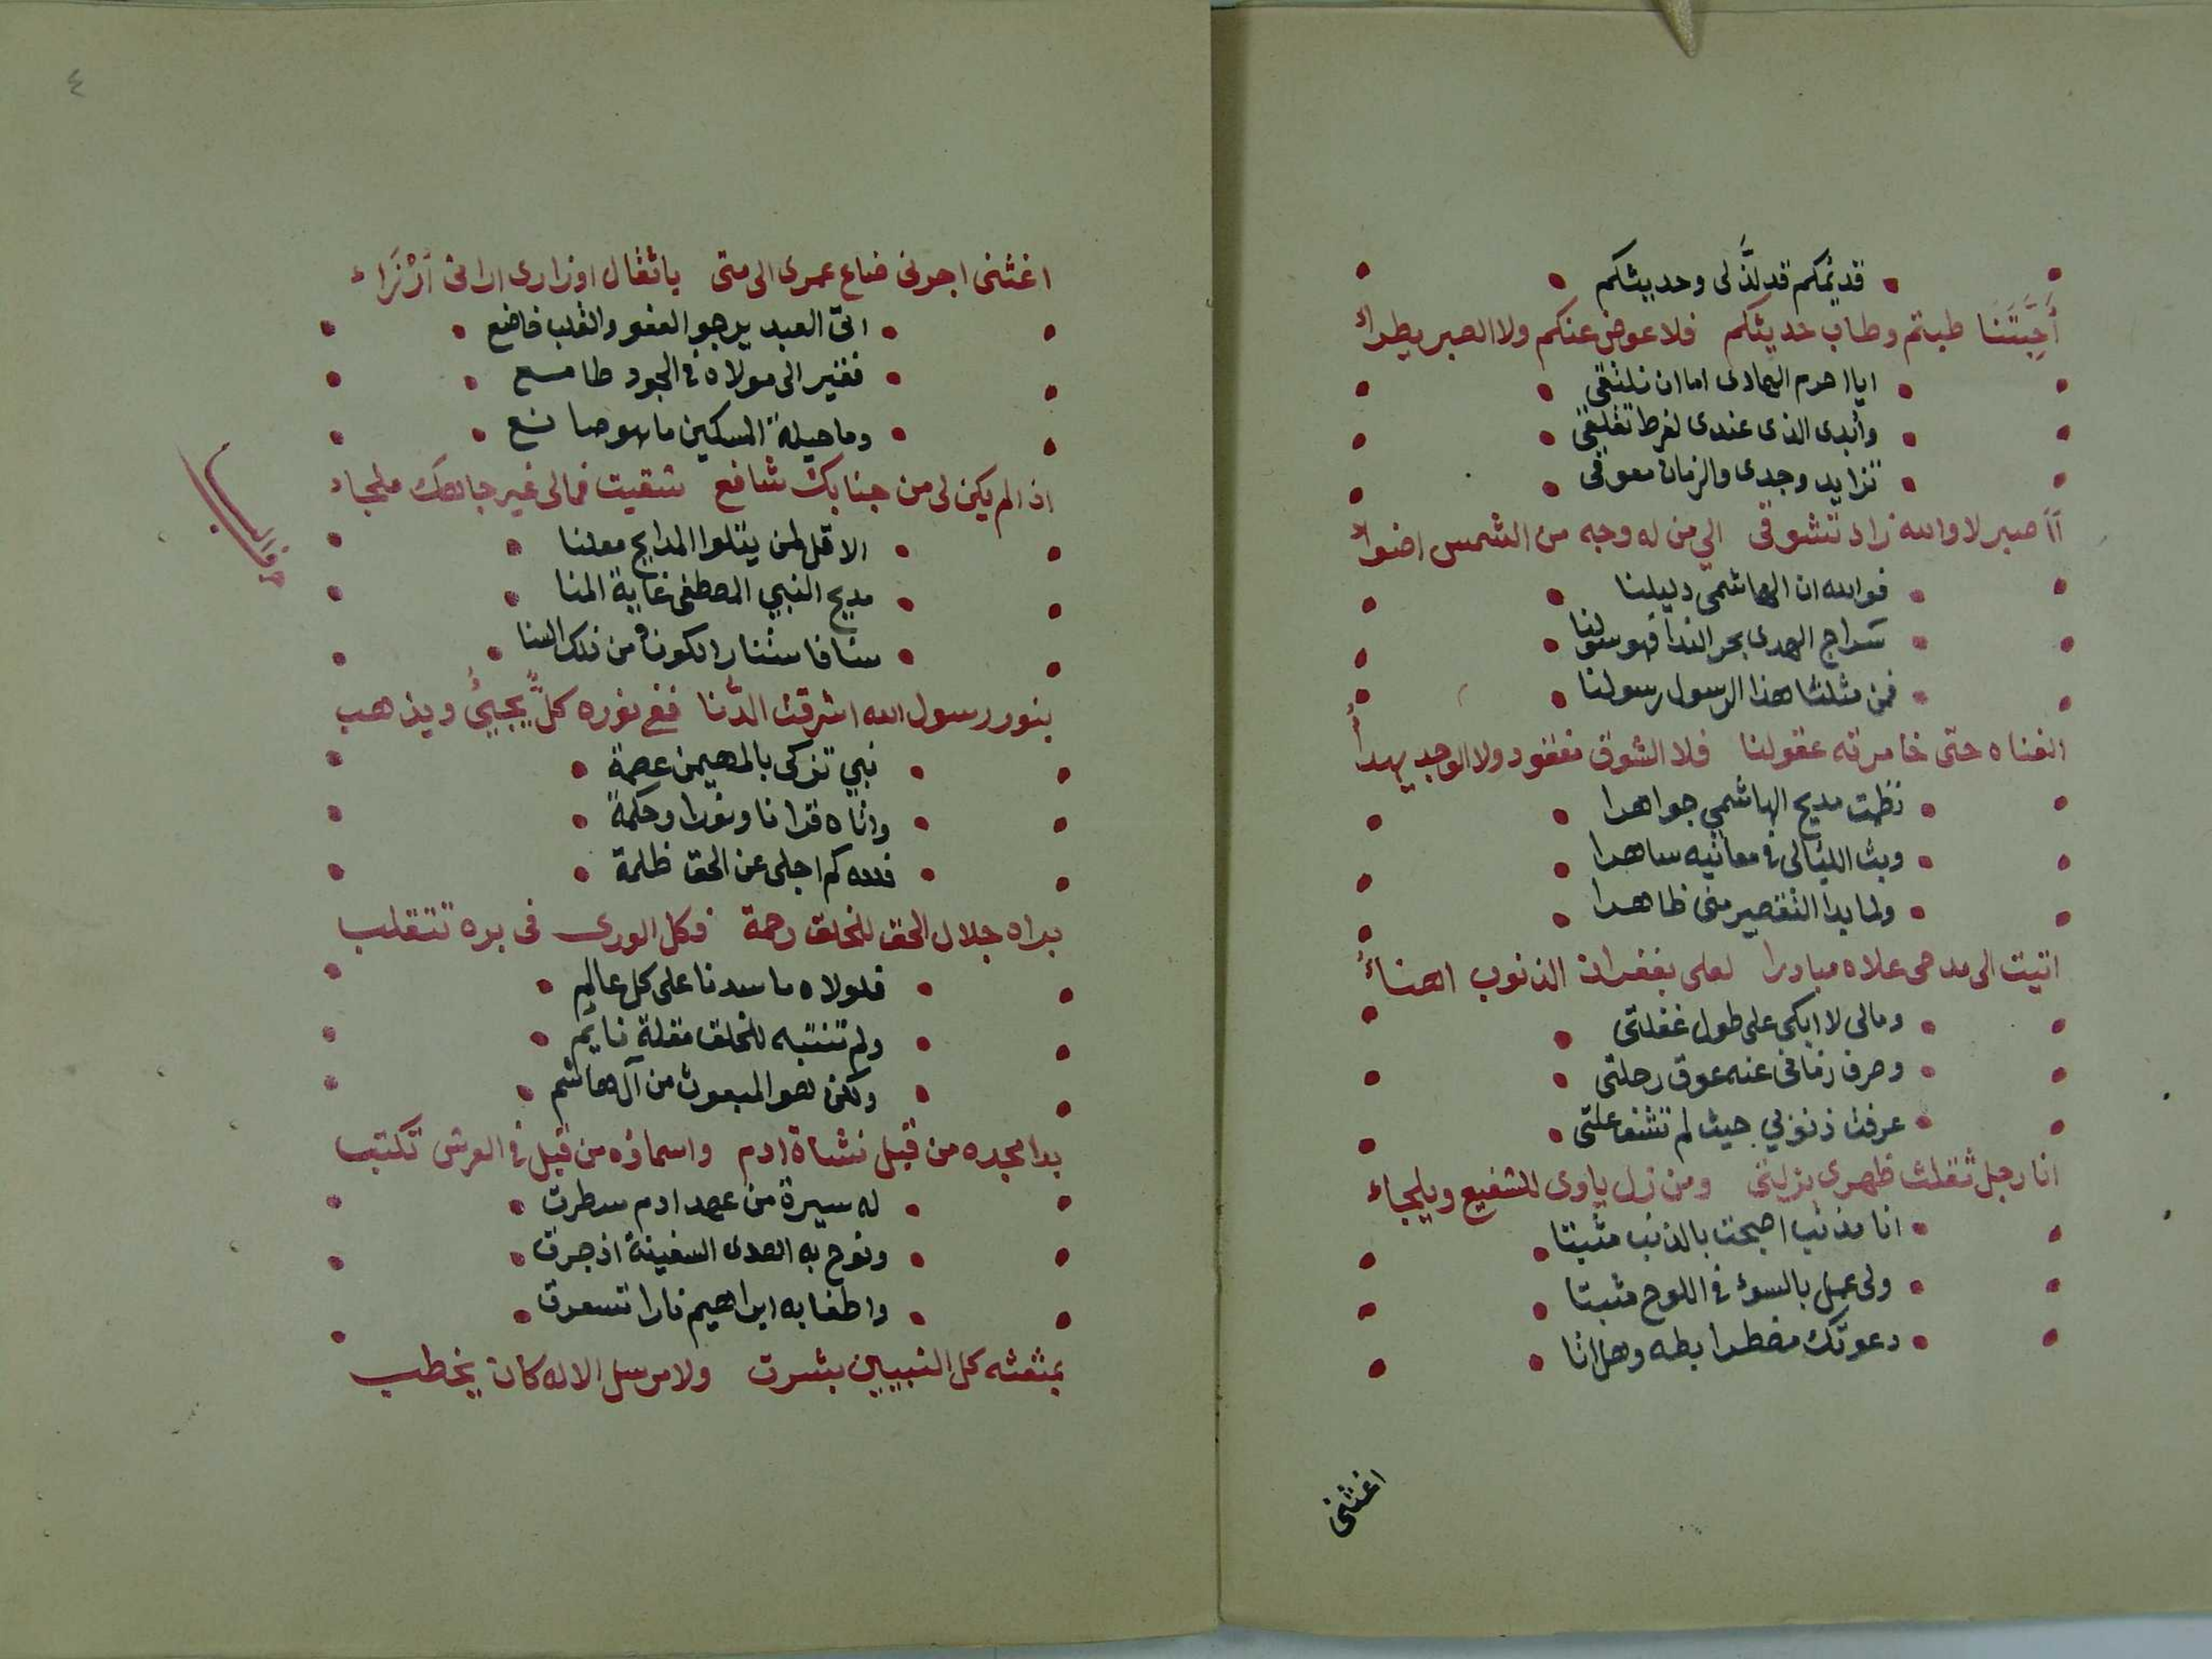 قديمكم قد لذّ لى وحديثكم
أحِبَّتَنَا طبتم وطاب حديثكم فلا عوض عنكم ولا الصبر يطراءُ
ايا اهرم الحادى اما ان نلتقى
وأبدى الذى عندى لفرط تقلقى
تزايد وجدى والزمان معوقى
أأصبر لا والله زاد تشوقى الي من له وجه من الشمس اضواءُ
فوالله ان الهاشمى دليلنا
سراج الهدى بحر الندا فهو سولنا
فمن مثلنا هذا الرسول رسولنا
الفناه حتى خامرته عقولنا فلا الشوق مفقود ولا الوجد يهدأُ
نظمت مديح الهاشمي جواهرا
وبت الليالى فى معانيه ساهرا
ولما بدا التقصير منى ظاهرا
اتيت الى مدحى علاه مبادرا لعلى بغفران الذنوب اهناءُ
ومالى لا ابكى على طول غفلتى
وصرف زمانى عنه عوق رحلتى
عرفت ذنوبي حيث لم تشف علتى
انا رجل ثقلت ظهرى بزلتى ومن زل ياوى للشفيع ويلجاء
انا مذنب اصبحت بالذنب مثبتا
ولى عمل بالسوء فى اللوح مثبتا
دعوتك مضطرا بطه وهل انا
اغثنى
٤
اغثنى اجرنى ضاع عمرى الى متى باثقال اوزارى ارانى اُرْزَاء
اتى العبد يرجو العفو والقلب خاضع
فقير الى مولاه فى الجود طامع
وما حيلة المسكين ما هو صانع
اذا لم يكن لى من جنابك شافع شقيت فمالى غير جاهك ملجاء
الا قل لمن يتلوا المدايح معلنا
مديح النبي المصطفى غاية المنا
سنا فاستنار الكون من ذلك السنا
بنور رسول الله اشرقت الدُّنا ففى نوره كلٌّ يجيئُ ويذهب
نبي تزكى بالمهيمن عصمة
واتاه قرانا ونورا وحكمةً
فلله كم اجلى عن الحق ظلمة
براه جلال الحق للخلق رحمة فكل الورى فى بره تتقلب
فلولاه ما سدنا على كل عالم
ولم تنتبه للخلق مقلة نائم
ولكن هو المبعوث من آل هاشم
بدا مجده من قبل نشاة ادم واسماؤه من قبل فى العرش تكتب
له سيرة من عهد ادم سطرت
ونوح به اهدى السفينة اذ جرت
واطفا به ابراهيم نارا تسعرت
بمثعثه كل النبيين بشرت ولا مرسل الا له كان يخطب